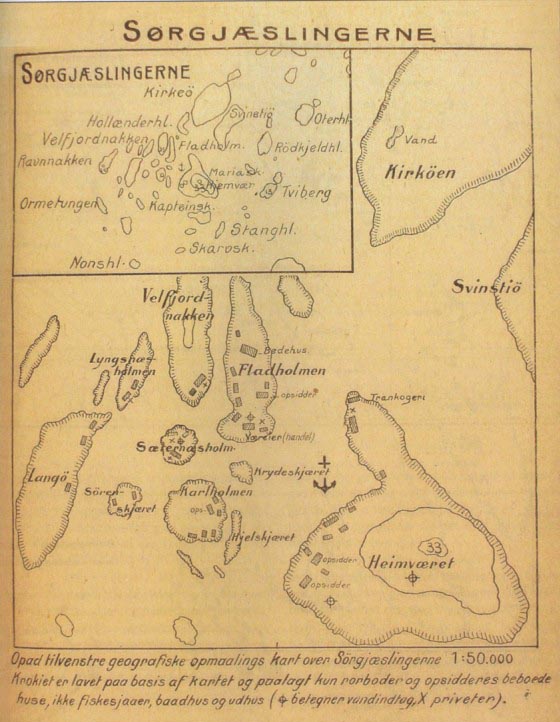 SØRGJÆSLINGERNE
SØRGJÆSLINGERNE
Kirkeö
Svinstiö
Hollænderhl.
Oterhl
Velfjordnakken
Fladholm.
Rödkjeldhl.
Ravnnakken
Mariask.
Hjemvær.
Tviberg
Ormetungen
Kapteinsk.
Stanghl.
Skarvsk.
Nonshl.
Vand
Kirköen
Svinstiö
Velfjord-
nakken
Bødehus.
Fladholmen
opsidder
Væreier (handel)
Lyngsnæs-
holmen
Trankogeri
Sæternæsholm.
Krydeskjæret
Langö
Sören-
skjæret
Karlholmen
ops.
Hjelskjæret
33
Heimværet
opsidder
opsidder
Opad tilvenstre geografiske opmaalings kart over Sörgjæslingerne 1:50.000
Krokiet er lavet paa basis af kartet og paalagt kun rorboder og opsidderes beboede
huse, ikke fiskesjaaer, baadhus og udhus ( betegner vandindtag, X priveter).